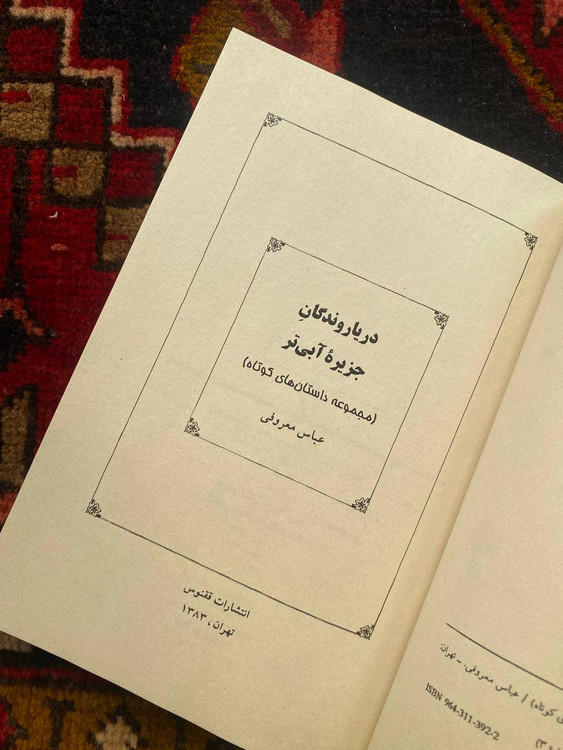 دریاروندگانِ
جزیرهٔ آبی‌تر
(مجموعه داستان‌های کوتاه)
عباس معروفی
انتشارات ققنوس
تهران، ۱۳۸۳
کوتاه) / عباس معروفی. ـ تهران:
ISBN 964-311-392-2